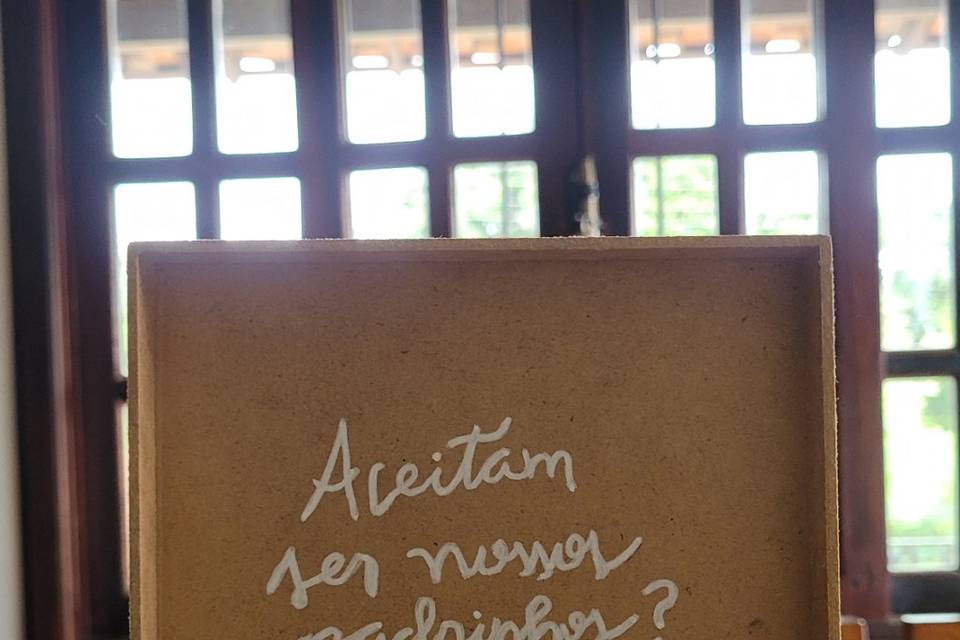 Aceitam
ser nossos
padrinhos?